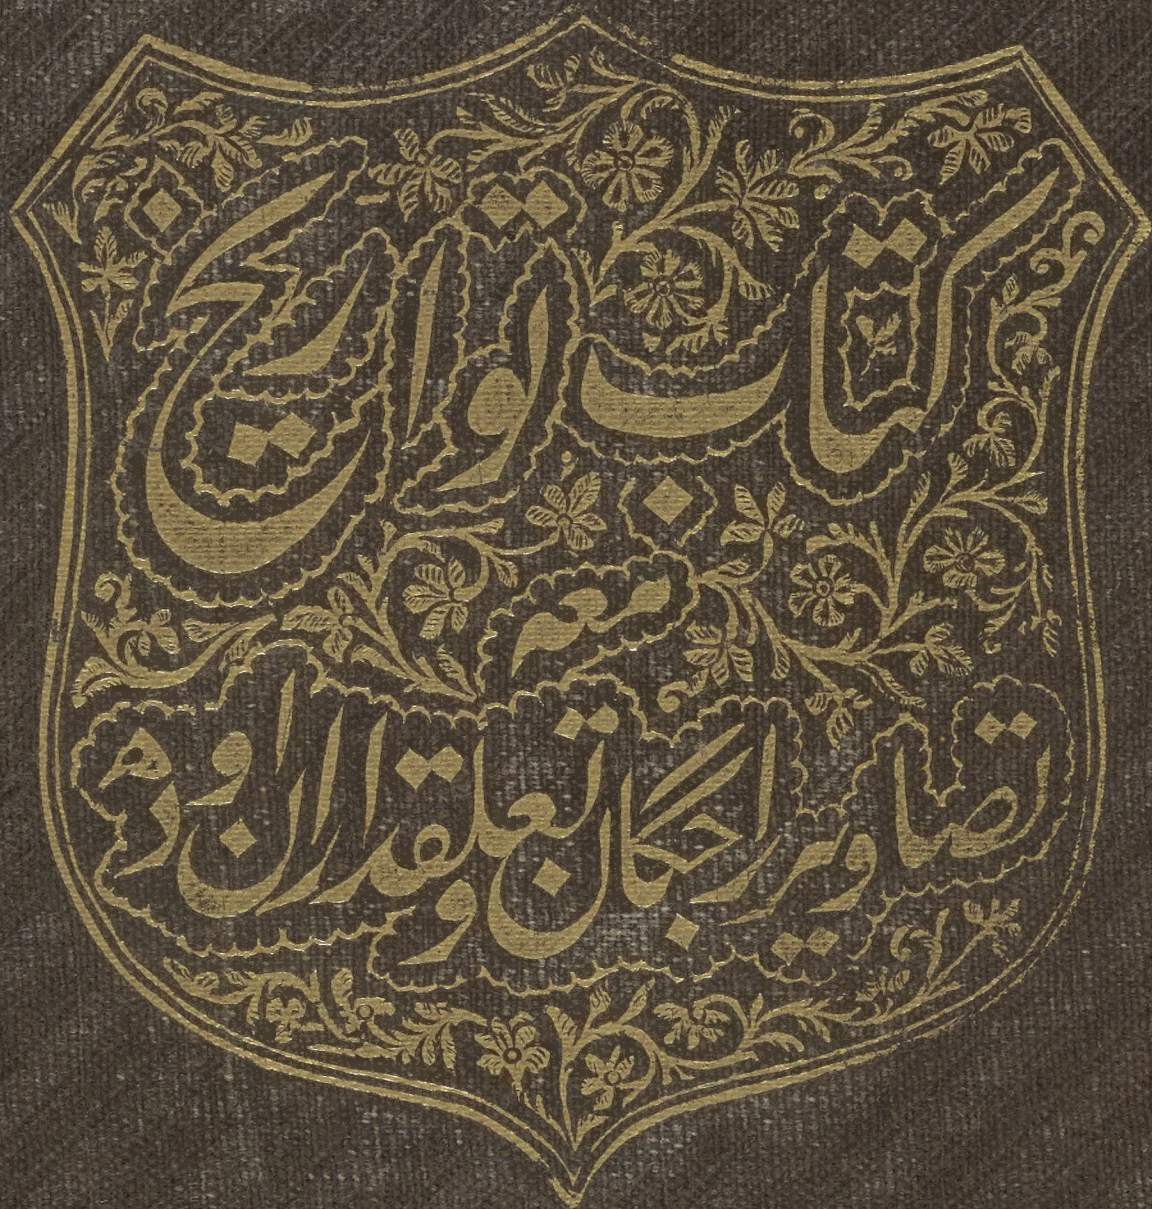 کتاب تواریخ
معه
تصاویر راجگان و تعلقداران اودهـ